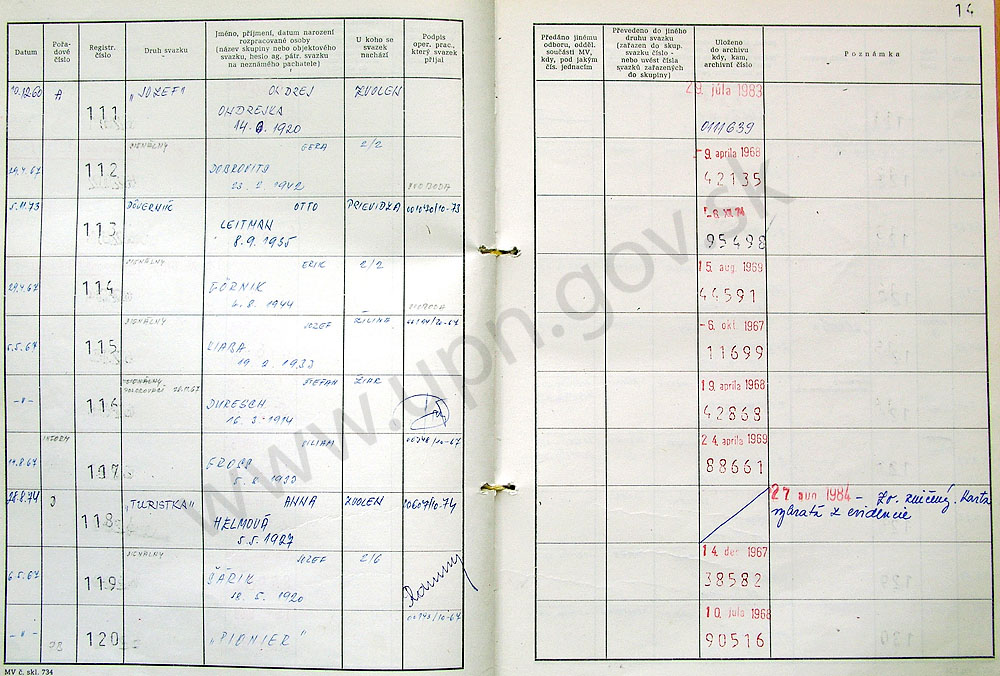 14
Datum
Pořa-
dové
číslo
Registr.
číslo
Druh svazku
Jméno, příjmení, datum narození
rozpracované osoby
(název skupiny nebo objektového
svazku, heslo ag. pátr. svazku
na neznámého pachatele)
U koho se
svazek
nachází
Podpis
oper. prac.,
který svazek
přijal
Předáno jinému
odboru, odděl.
součásti MV,
kdy, pod jakým
čís. jednacím
Převedeno do jiného
druhu svazku
(zařazen do skup.
svazku číslo -
nebo uvést čísla
svazků zařazených
do skupiny)
Uloženo
do archivu
kdy, kam,
archivní číslo
Poznámka
10.12.60 A 111 „JOZEF" ONDREJ ZVOLEN
ONDREJKA
14. 6. 1920
29. júla 1983
0111639
29.4.67 112 SIGNÁLNY GERA 2/2
DOBROVITS
23. 2. 1942
SVOBODA
-9. apríla 1968
42135
5.11.73 113 DÔVERNÍC OTTO PRIEVIDZA
LEITMAN
8. 9. 1935
-6. XII. 74
95498
29.4.67 114 SIGNÁLNY ERIK 2/2
GÖRNIK
4. 8. 1944
SVOBODA
15. aug. 1969
44591
5.5.67 115 SIGNÁLNY JOZEF ŽILINA
19. 2. 1933
-6. okt. 1967
11699
-"- 116 SIGNÁLNY ŠTEFAN ŽIAR
DURESCH
16. 3. 1914
19. apríla 1968
42868
INFORM
117 VILIAM
24. apríla 1969
88661
28.8.74 118 „TURISTKA" ANNA ZVOLEN
HELMOVÁ
5. 5. 1927
27. 1984 - zv. zničený. Karta
vybratá z evidencie
6.5.67 119 SIGNÁLNY JOZEF 2/6
ŠÁRIK
18. 5. 1920
14. dec. 1967
38582
-"- 120 „PIONIER"
10. júla 1968
90516
MV č. skl. 734
www.upn.gov.sk